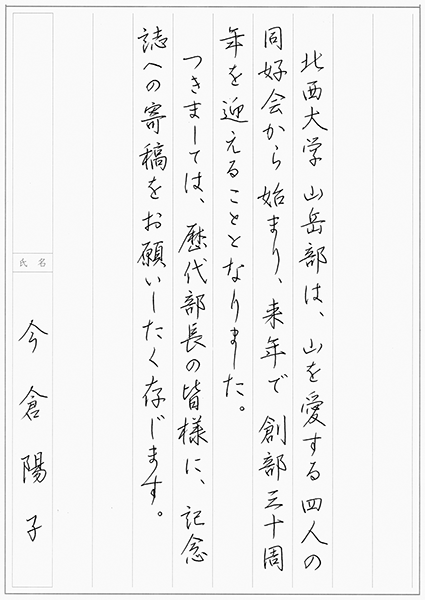 北西大学山岳部は、山を愛する四人の
同好会から始まり、来年で創部三十周
年を迎えることとなりました。
つきましては、歴代部長の皆様に、記念
誌への寄稿をお願いしたく存じます。
氏名
今倉陽子